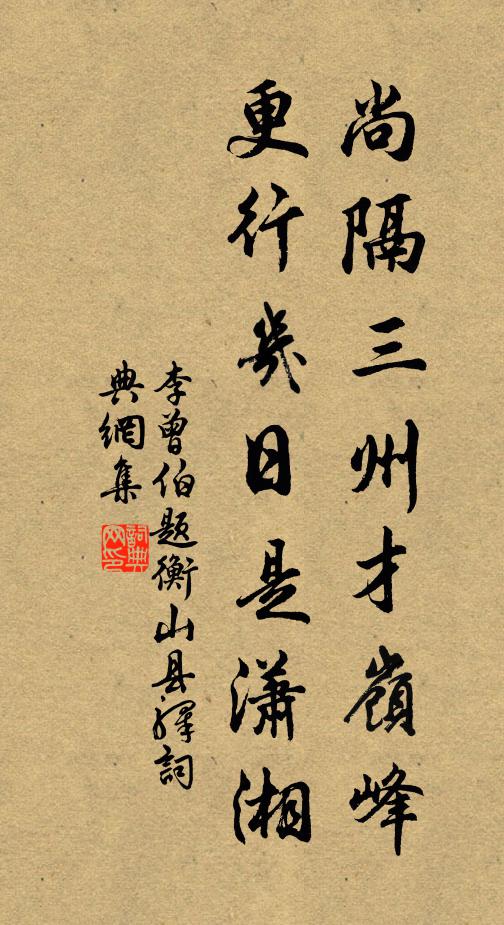 尚隔三州才嶺峰
更行幾日是瀟湘
李曾伯題衡山县驛詞
典網集
詞典
网印